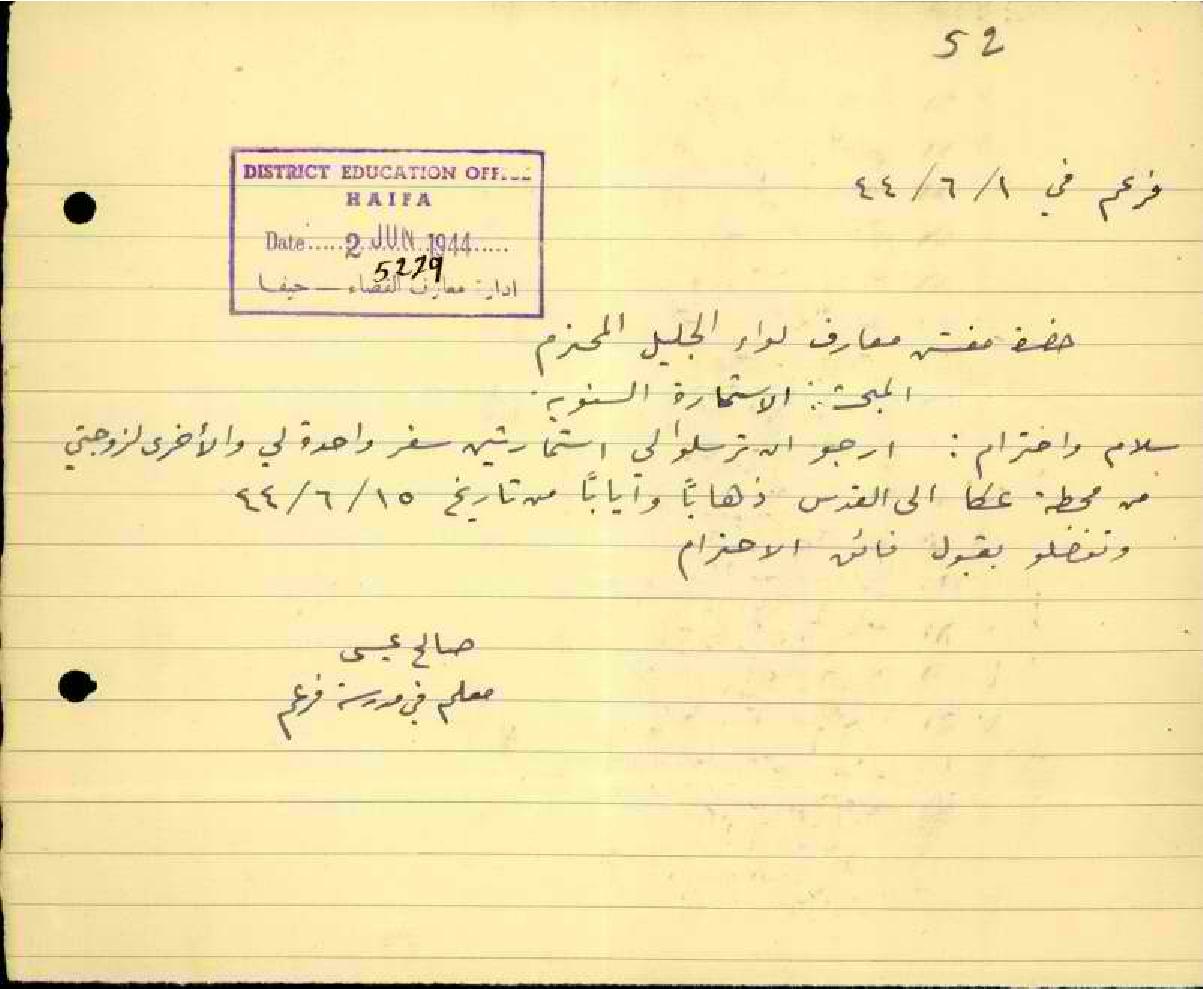 52
فرعم في ١/٦/٤٤
DISTRICT EDUCATION OFF
HAIFA
Date.....2 JUN 1944.....
5279
ادارة معارف القضاء — حيفا
حضرة مفتش معارف لواء الجليل المحترم
المبحث: الاستمارة السنوية
سلام واحترام: ارجو ان ترسلوا لي استمارتين سفر واحدة لي والأخرى لزوجتي
من محطة عكا الى القدس ذهابًا وآيابًا من تاريخ ١٥/٦/٤٤
وتفضلو بقبول فائق الاحترام
صالح عيسى
معلم في مدرسة فرعم